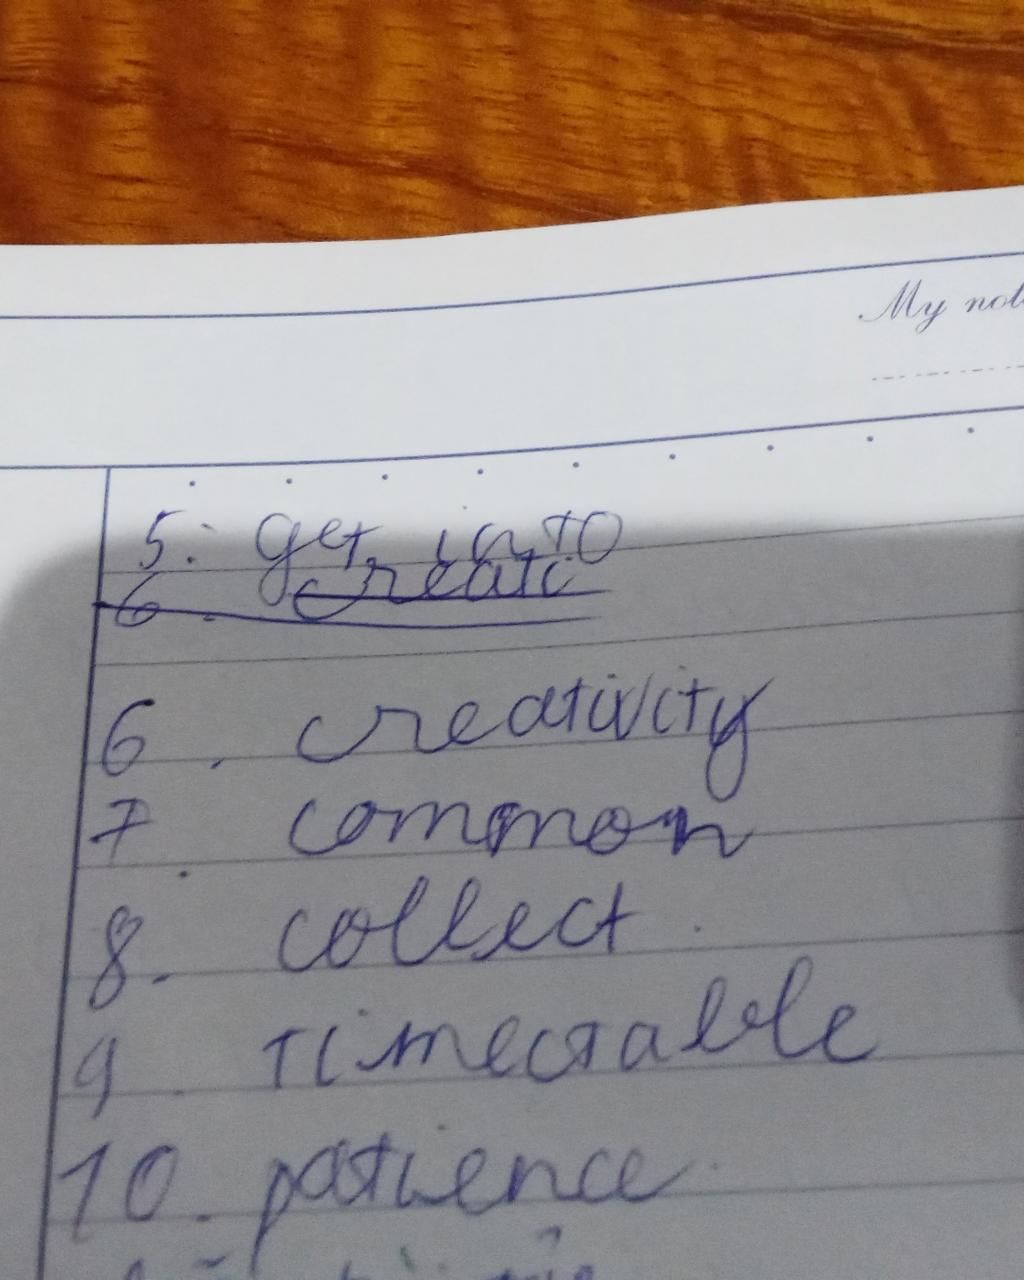 My
5. get into
6. Creati
6. creativity
7 common
8. collect.
9. timetable
10. patience.